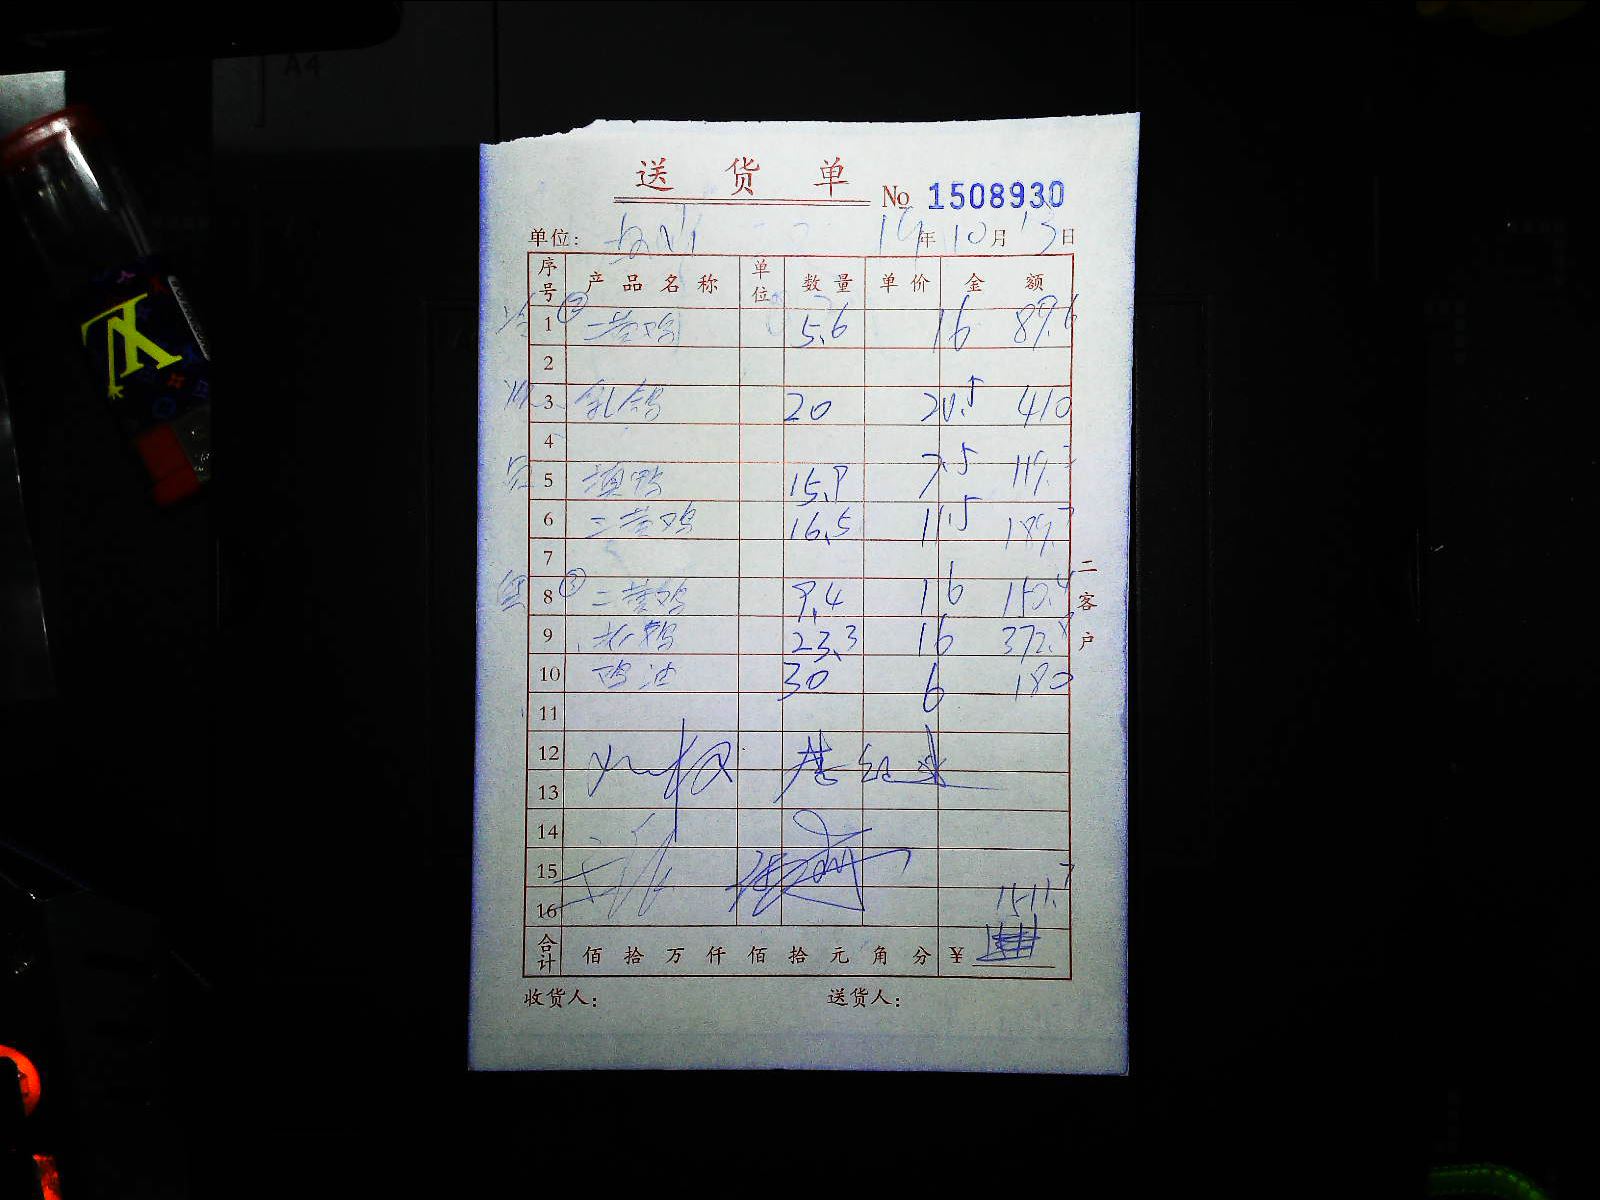 A4
送 货 单
No 1508930
单位: 19年10月13日
序号 产品名称 单位 数量 单价 金额
1 ② 三黄鸡 5.6 16 89.6
2
3 乳鸽 20 20.5 410
4
5 填鸭 15.9 7.5 119.2
6 三黄鸡 16.5 11.5 189.7
7
8 ② 三黄鸡 9.4 16 150.4
9 老鸭 23.3 16 372.8
10 鸡油 30 6 180
11
12
13
14
15
16 1511.7
合计 佰 拾 万 仟 佰 拾 元 角 分 ¥
二客户
收货人: 送货人: